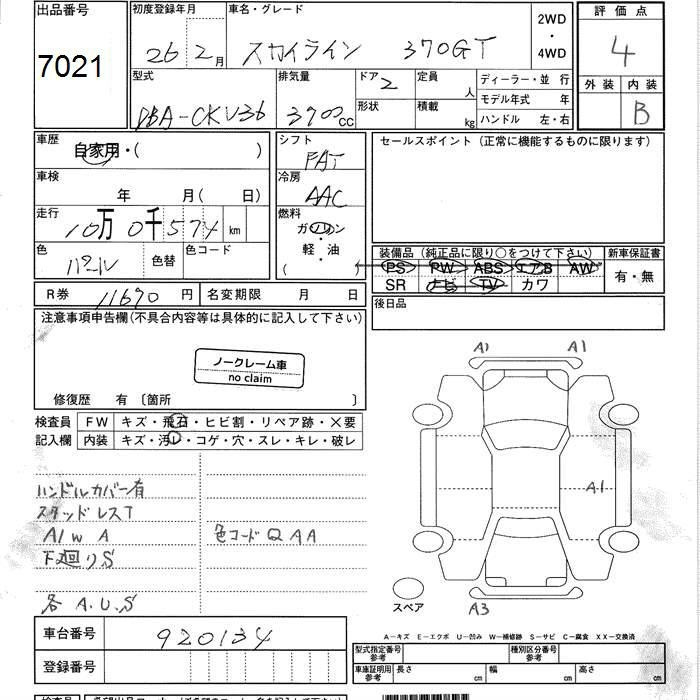 出品番号
7021
初度登録年月
26 年 2 月
車名・グレード
スカイライン 370GT
2WD
・
4WD
評価点
4
外装 内装
B
型式
DBA-CKV36
排気量
3700 cc
ドア 2
形状
定員
人
積載
kg
ディーラー・並行
モデル年式 年
ハンドル 左・右
車歴
自家用・( )
車検
年 月( 日)
走行
10万0千574 km
色
パール
色替
色コード
シフト
FAT
冷房
AAC
燃料
ガソリン
・
軽・油
( )
セールスポイント(正常に機能するものに限ります)
装備品(純正品に限り○をつけて下さい)
PS PW ABS エアB AW
SR ナビ TV カワ
新車保証書
有・無
後日品
R券 11690 円
名変期限 月 日
注意事項申告欄(不具合内容等は具体的に記入して下さい)
ノークレーム車
no claim
修復歴 有〔箇所 〕
検査員
記入欄
FW キズ・飛石・ヒビ割・リペア跡・×要
内装 キズ・汚レ・コゲ・穴・スレ・キレ・破レ
ハンドルカバー有
スタッドレスT
A/W A
色コードQAA
下廻りS
各 A.U.S
A1 A1
A1
A3
スペア
車台番号
920134
登録番号
A-キズ E-エクボ U-凹み W-補修跡 S-サビ C-腐食 XX-交換済
型式指定番号
参考
種別区分番号
参考
車庫証明用
参考
長さ cm
幅 cm
高さ cm